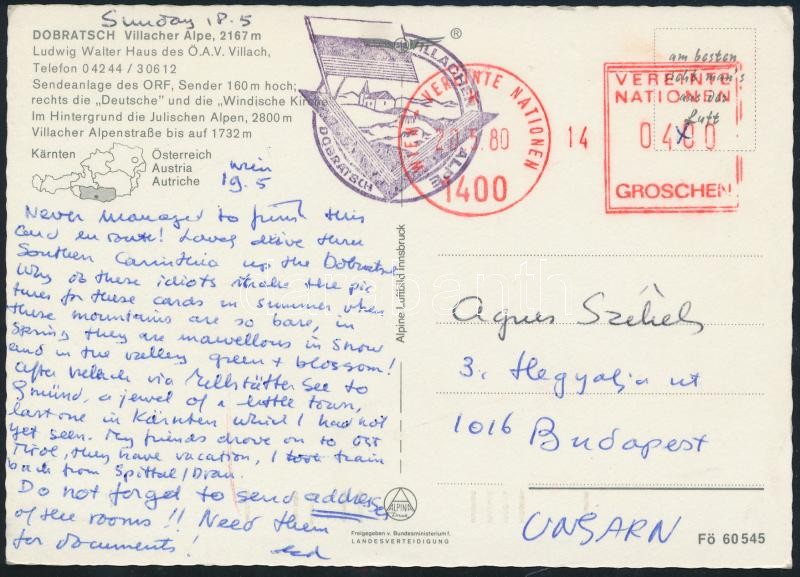 Sunday 18.5
DOBRATSCH Villacher Alpe, 2167 m
Ludwig Walter Haus des Ö.A.V. Villach,
Telefon 0 42 44 / 3 06 12
Sendeanlage des ORF, Sender 160 m hoch;
rechts die „Deutsche" und die „Windische Kirche
Im Hintergrund die Julischen Alpen, 2800 m
Villacher Alpenstraße bis auf 1732 m
Kärnten
Österreich
Austria
Autriche
Wien
19.5
Never managed to finish this
card en route! Lovely drive thru
Southern Carinthia up the Dobratsch
Why do these idiots make the pic
tures for these cards in summer when
these mountains are so bare, in
Spring they are marvellous in snow
and in the valley green + blossom!
After Villach via Millstätter See to
Gmünd, a jewel of a little town,
last one in Kärnten which I had not
yet seen. My friends drove on to Ost
Tirol, they have vacation, I took train
back from Spittal/Drau.
Do not forget to send addresses
of the rooms!! Need them
for documents!
®
VILLACHER ALPE
DOBRATSCH
WIEN - VEREINTE NATIONEN
20.5.80
1400
14
VEREINTE
NATIONEN
0400
GROSCHEN
am besten
sieht man's
aus der
Luft
x
Alpine Luftbild Innsbruck
Agnes Székely
3. Hegyalja ut
1016 Budapest
UNGARN
ALPINA
Druck
Freigegeben v. Bundesministerium f.
LANDESVERTEIDIGUNG
Fö 60 545
darabanth